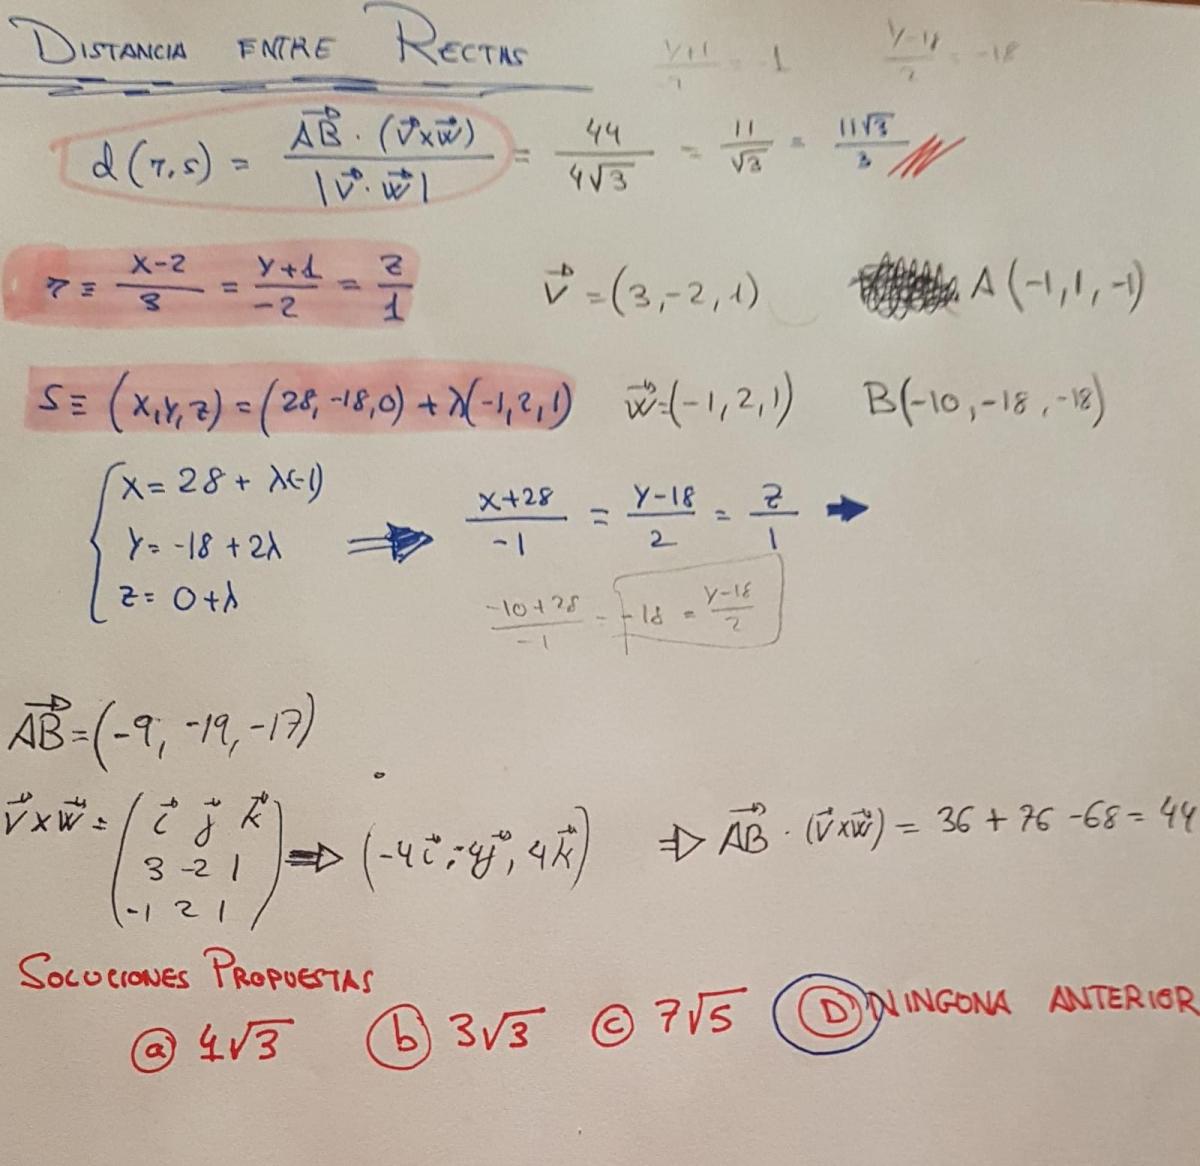 DISTANCIA ENTRE RECTAS
y+1/2 = -1    y-18/2 = -18
d(r,s) = AB·(v×w)/|v·w| = 44/4√3 = 11/√3 = 11√3/3
r ≡ x-2/3 = y+1/-2 = z/1    v = (3,-2,1)    A(-1,1,-1)
S ≡ (x,y,z) = (28,-18,0) + λ(-1,2,1)    w = (-1,2,1)    B(-10,-18,-18)
x = 28 + λ(-1)
y = -18 + 2λ ⇒ x+28/-1 = y-18/2 = z/1 →
z = 0+λ
-10+28/-1 = -18 = y-18/2
AB = (-9, -19, -17)
v×w = (i j k ⇒ (-4i, -4j, 4k) ⇒ AB·(v×w) = 36 + 76 - 68 = 44
3 -2 1
-1 2 1)
SOLUCIONES PROPUESTAS
a 4√3    b 3√3    c 7√5    D NINGONA ANTERIOR